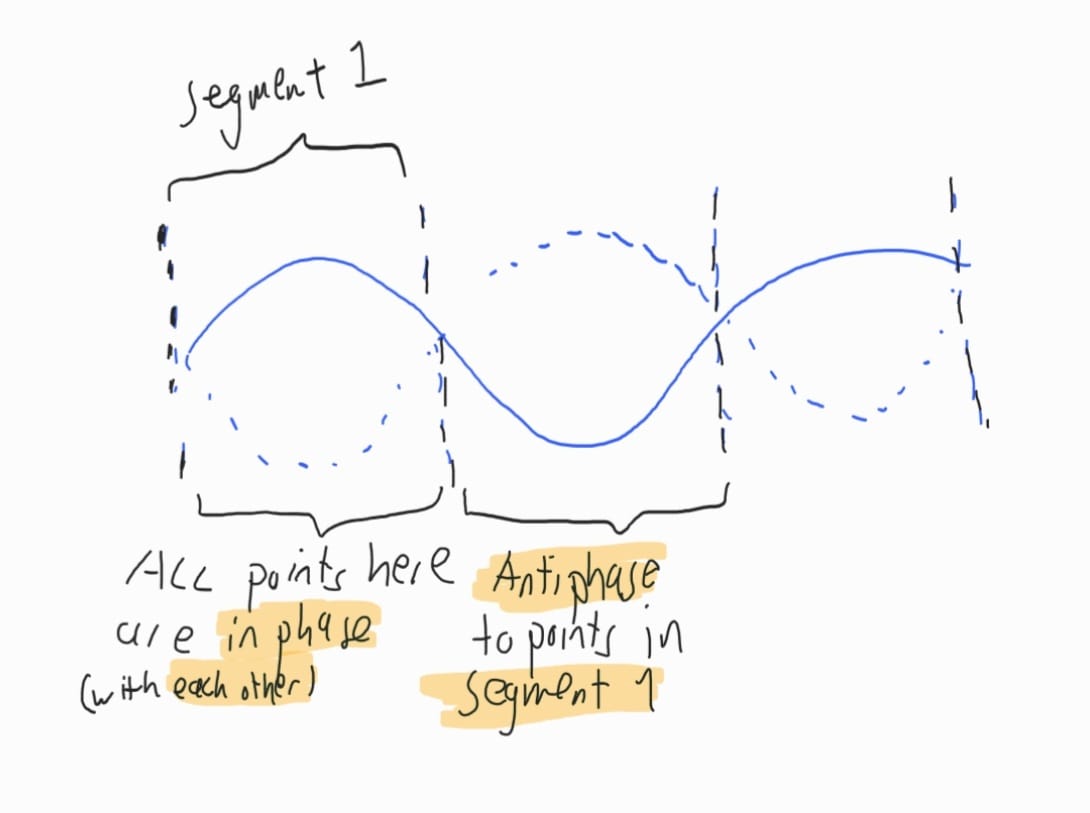 Segment 1
All points here
are in phase
(with each other)
Antiphase
to points in
Segment 1